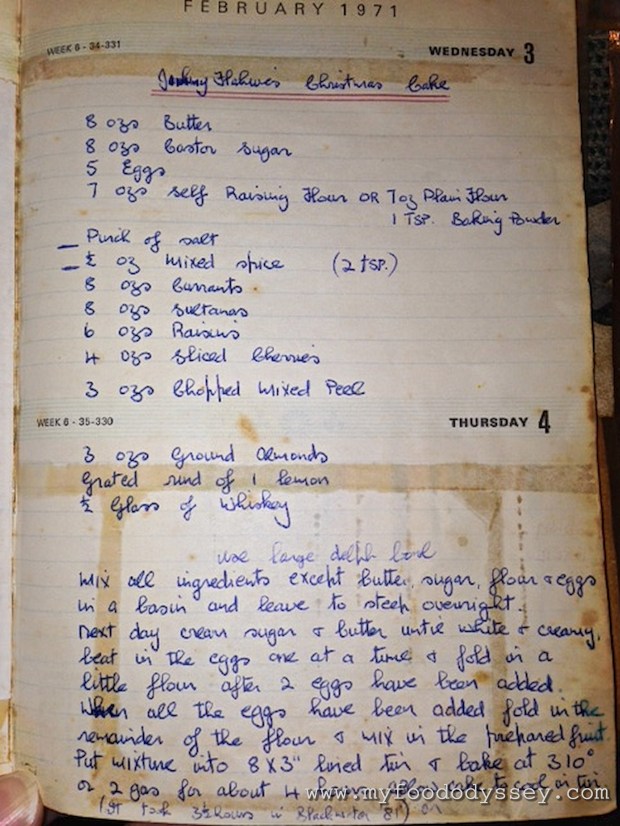 FEBRUARY 1971
WEEK 6 - 34-331 WEDNESDAY 3
Christmas Cake
8 ozs Butter
8 ozs Castor Sugar
5 Eggs
7 ozs Self Raising Flour OR 7oz Plain Flour
1 TSP. Baking Powder
Pinch of salt
½ oz Mixed spice (2 TSP.)
8 ozs Currants
8 ozs Sultanas
6 ozs Raisins
4 ozs Sliced Cherries
3 ozs Chopped Mixed Peel
WEEK 6 - 35-330 THURSDAY 4
3 ozs Ground Almonds
Grated rind of 1 lemon
½ Glass of Whiskey
use large delph bowl
Mix all ingredients except butter, sugar, flour & eggs
in a basin and leave to steep overnight.
Next day cream sugar & butter until white & creamy,
beat in the eggs one at a time & fold in a
little flour after 2 eggs have been added.
When all the eggs have been added fold in the
remainder of the flour & mix in the prepared fruit.
Put mixture into 8 X 3" lined tin & bake at 310°
or 2 gas for about 4 hours allow cake to cool in tin
(It took 3½ hours in
www.myfoododyssey.com